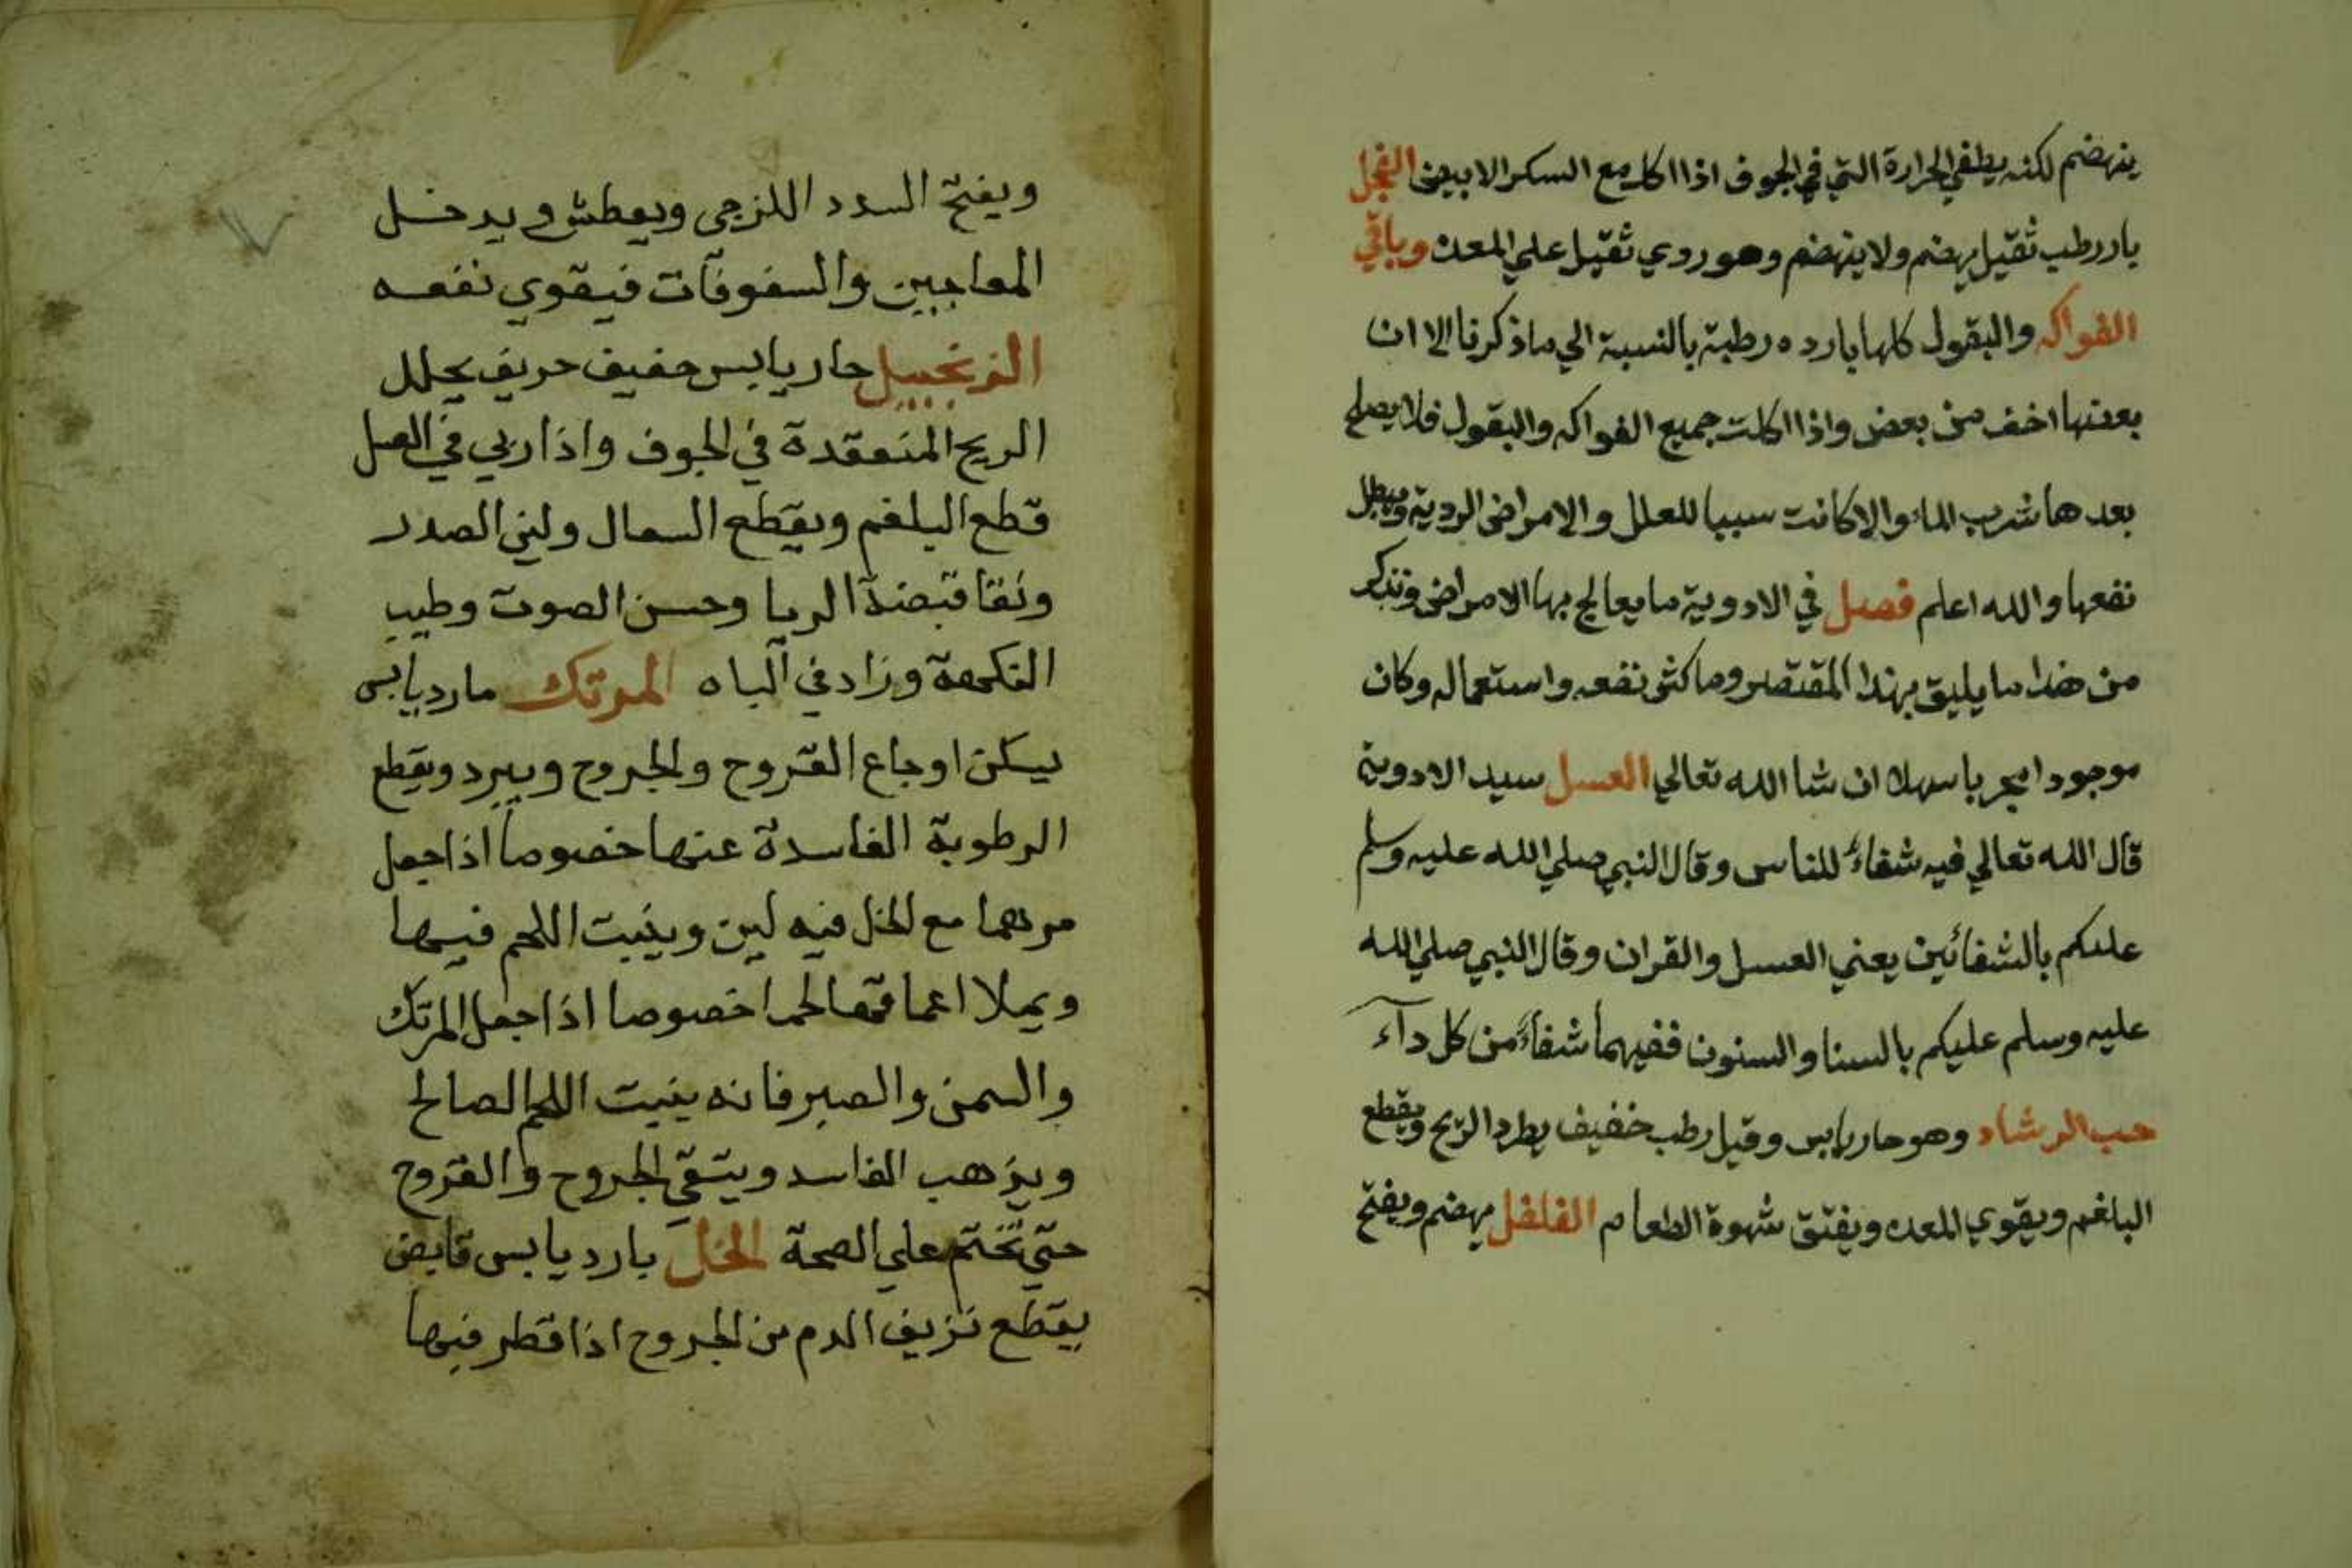 ينهضم لكنه يطفي الحرارة التي في الجوف اذا اكل مع السكر الابيض الفجل
بارد رطب ثقيل يهضم ولا ينهضم وهو ردي ثقيل علي المعدة وباقي
الفواكه والبقول كلها بارده رطبة بالنسبة الي ما ذكرنا الا ان
بعضها اخف من بعض واذا اكلت جميع الفواكه والبقول فلا يصلح
بعدها شرب الماء والا كانت سببا للعلل والامراض الردية ويبطل
نفعها والله اعلم فصل في الادوية ما يعالج بها الامراض ونذكر
من هذا ما يليق بهذا المقتصر وما كثر نفعه واستعماله وكان
موجودا مجربا سهلا ان شا الله تعالي العسل سيد الادوية
قال الله تعالي فيه شفاء للناس وقال النبي صلي الله عليه وسلم
عليكم بالشفائين يعني العسل والقران وقال النبي صلي الله
عليه وسلم عليكم بالسنا والسنون ففيهما شفاء من كل دآء
حب الرشاد وهو حار يابس وقيل رطب خفيف يطرد الريح ويقطع
البلغم ويقوي المعده ويفتق شهوة الطعام الفلفل يهضم ويفتح
ويفتح السدد اللزجى ويعطش ويدخل
المعاجين والسفوفات فيقوي نفعه
الزنجبيل حار يابس خفيف حريف يحلل
الريح المنعقدة في الجوف واذا ربي في العسل
قطع البلغم ويقطع السعال ولين الصدر
ونقا قبضة الريا وحسن الصوت وطيب
النكهة وزاد في الباه المرتك مارد يابس
يسكن اوجاع القروح والجروح ويبرد ويقطع
الرطوبة الفاسدة عنها خصوصا اذا جعل
مرهما مع الخل فيه لين وينبت اللحم فيها
ويملا اعماقها لحما خصوصا اذا جعل المرتك
والسمن والصبر فانه ينبت اللحم الصالح
ويذهب الفاسد وينقي الجروح والقروح
حتي تختم علي الصحة الخل بارد يابس قابض
يقطع نزيف الدم من الجروح اذا قطر فيها